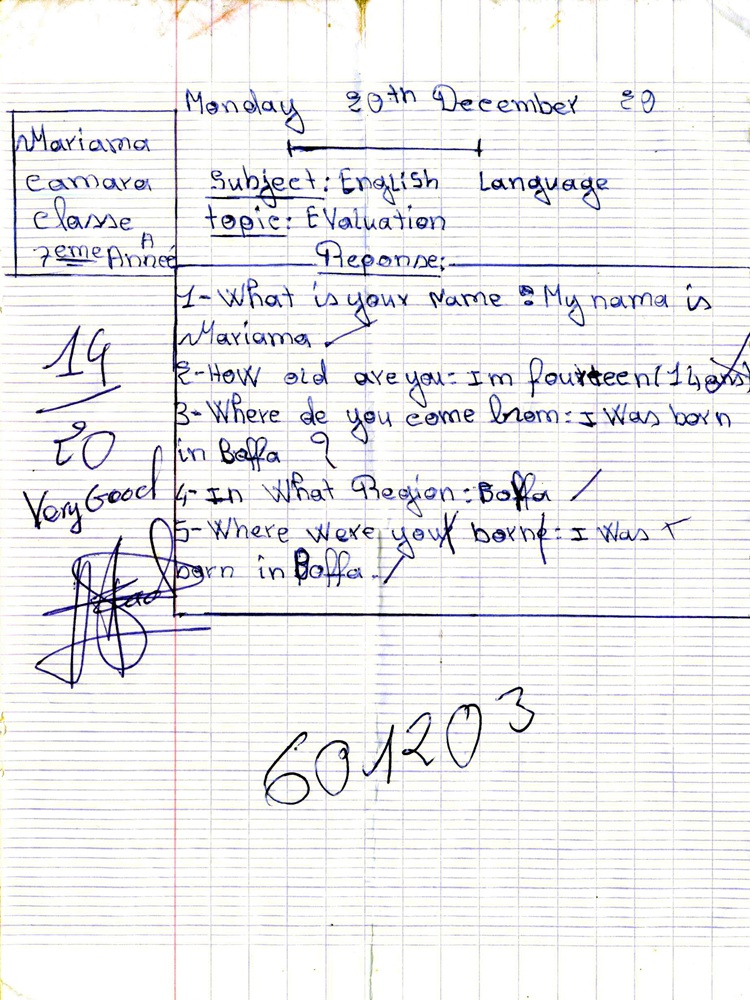 Monday 20th December 20
Mariama
camara
classe
7eme Année A
Subject: English Language
topic: EValuation
Reponse:
1- What is your Name : My nama is
Mariama
2- How old are you: Im fourteen (14 ans)
3- Where de you come brom: I Was born
in Boffa ?
4- In What Region: Boffa
5- Where were your borne: I Was
born in Boffa.
14
20
Very Good
601203